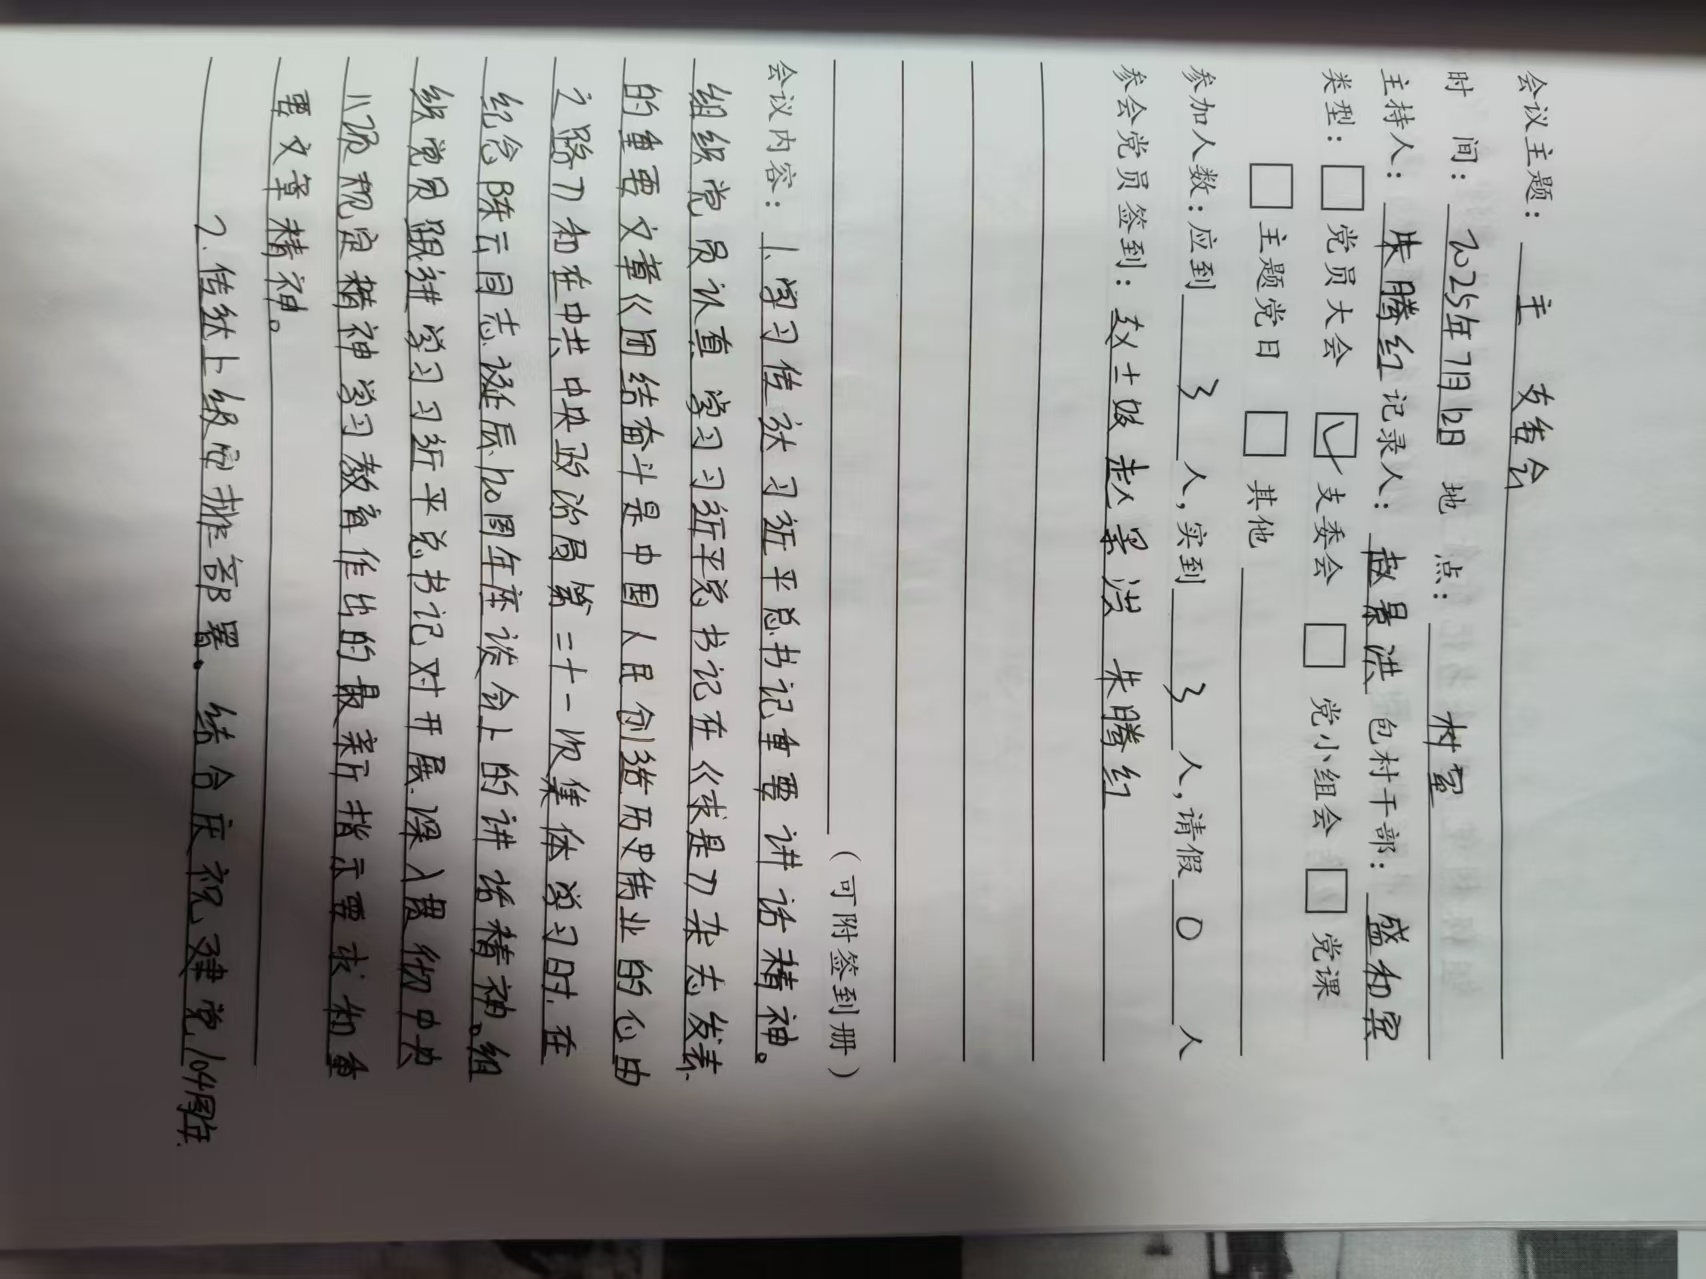 会议主题：主 支委会
时 间：2025年7月6日 地 点：村室
主持人：朱腾红 记录人：赵景洪 包村干部：盛和宾
类型：□ 党员大会 ☑ 支委会 □ 党小组会 □ 党课
□ 主题党日 □ 其他
参加人数：应到 3 人，实到 3 人，请假 0 人
参会党员签到：赵士 赵景洪 朱腾红
（可附签到册）
会议内容：1、学习传达习近平总书记重要讲话精神。
组织党员认真学习习近平总书记在《求是》杂志发表
的重要文章《团结奋斗是中国人民创造历史伟业的必由
之路》和在中共中央政治局第二十一次集体学习时.在
纪念陈云同志诞辰120周年座谈会上的讲话精神。组
织党员跟进学习习近平总书记对开展深入贯彻中央
八项规定精神学习教育作出的最新指示要求和重
要文章精神。
2.传达上级安排部署。结合庆祝建党104周年.